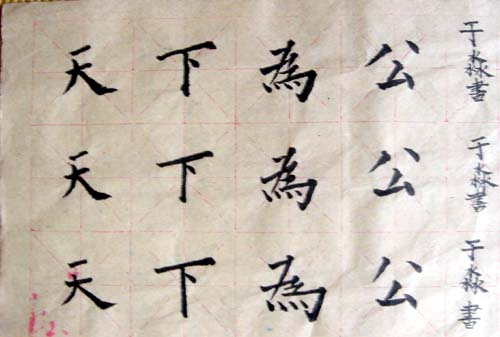 天下為公 于淼書
天下為公 于淼書
天下為公 于淼書